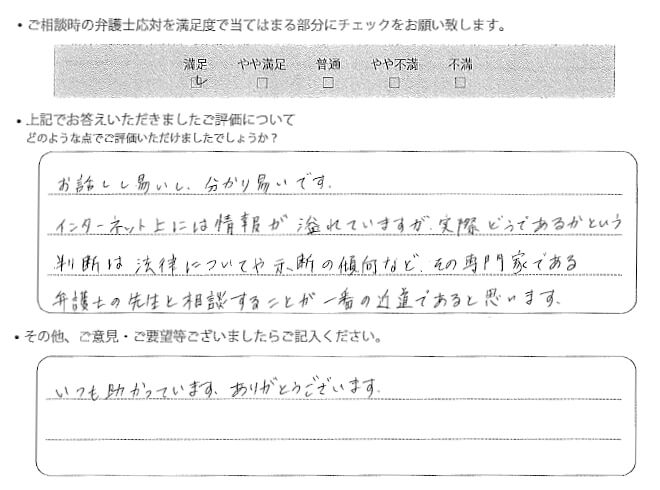 ・ご相談時の弁護士応対を満足度で当てはまる部分にチェックをお願い致します。
満足 やや満足 普通 やや不満 不満
・上記でお答えいただきましたご評価について
どのような点でご評価いただけましたでしょうか？
お話しし易いし、分かり易いです。
インターネット上には情報が溢れていますが、実際どうであるかという
判断は法律についてや示断の傾向など、その専門家である
弁護士の先生と相談することが一番の近道であると思います。
・その他、ご意見・ご要望等ございましたらご記入ください。
いつも助かっています、ありがとうございます。